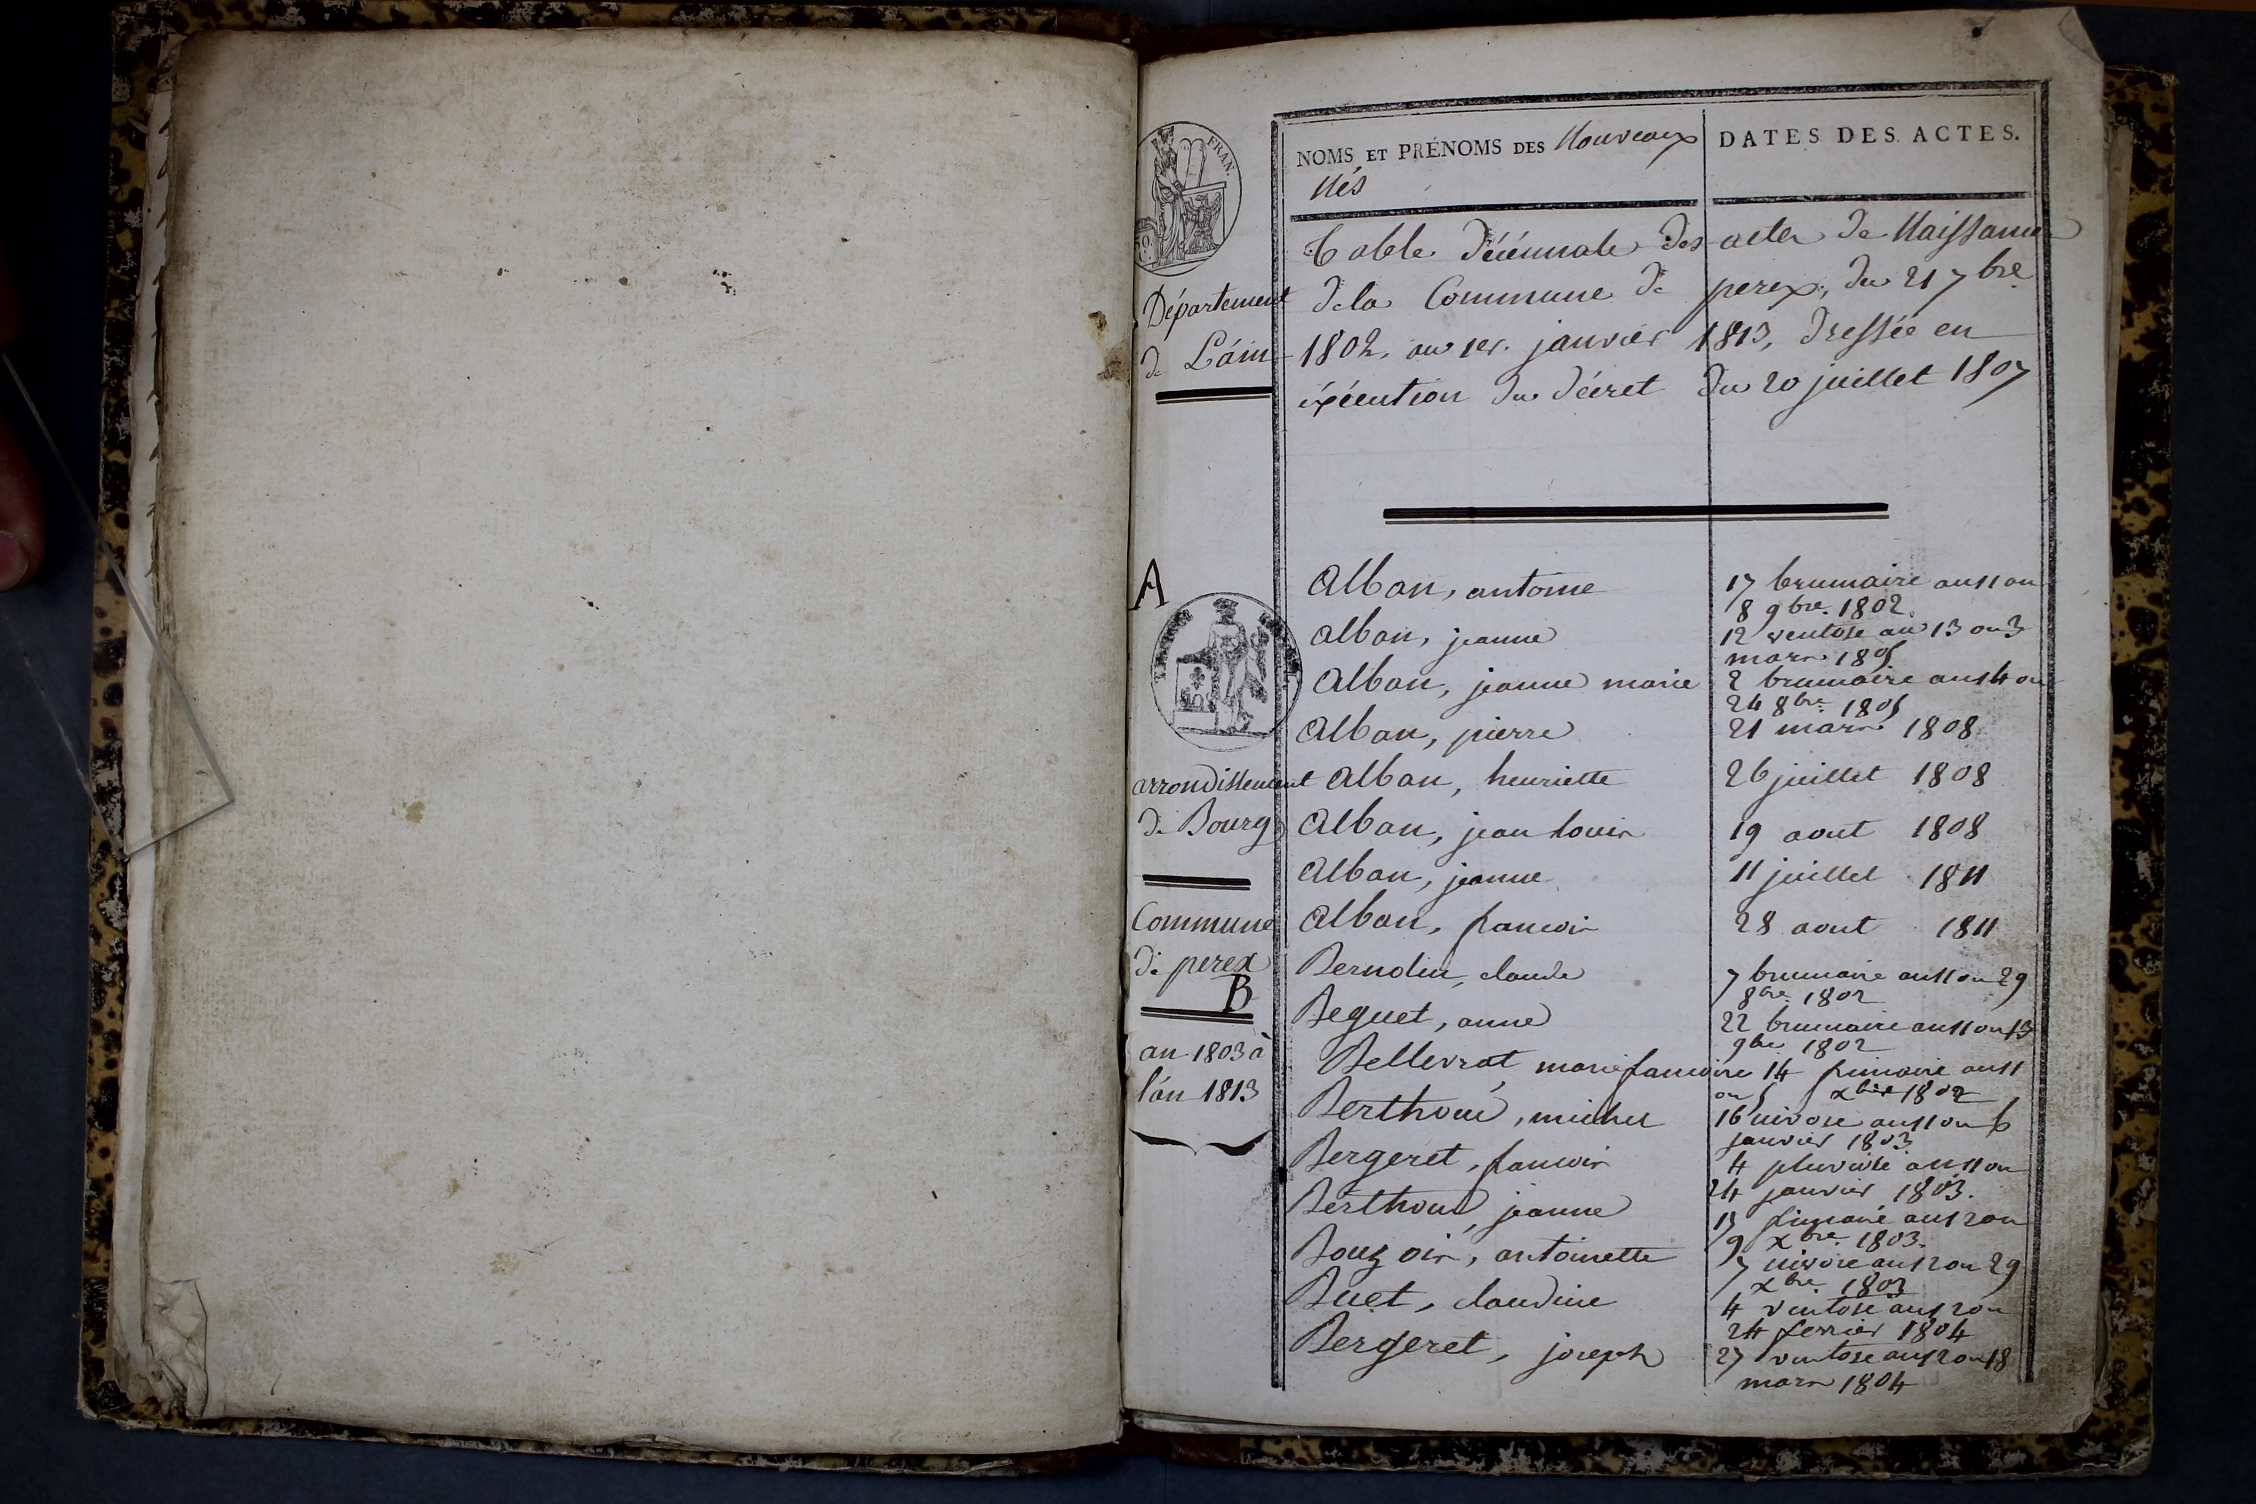 FRAN.
NOMS ET PRÉNOMS DES Nouveaux
Nés
DATES DES ACTES.
Table Décénnale des actes de Naissance
de la Commune de perex, du 21 7bre
1802, au 1er. janvier 1813, Dressée en
éxécution du décret du 20 juillet 1807
Département
de L'áin
A
arrondissement
de Bourg
Commune
de perex
B
an 1803 à
l'án 1813
Alban, antoine
17 brumaire an 11 ou
8 9bre. 1802.
alban, jeanne
12 ventose an 13 ou 3
mars 1805
Alban, jeanne marie
2 brumaire an 14 ou
24 8bre 1805
Alban, pierre
21 mars 1808
alban, henriette
26 juillet 1808
Alban, jean louis
19 aout 1808
Alban, jeanne
11 juillet 1811
Alban, francois
28 aout 1811
Bernolin, claude
7 brumaire an 11 ou 29
8bre 1802
Beguet, anne
22 brumaire an 11 ou 13
9bre 1802
Bellevrat, marie francoise
14 frimaire an 11
ou 5 xbre 1802
Berthoud, michel
16 nivose an 11 ou 6
janvier 1803
Bergeret, francois
4 pluviose an 11 ou
24 janvier 1803.
Berthoud, jeanne
frimaire an 12 ou
9 xbre 1803.
antoinette
7 nivose an 12 ou 29
xbre 1803
Buet, claudine
4 ventose an 12 ou
24 fevrier 1804
Bergeret, joseph
27 ventose an 12 ou 18
mars 1804